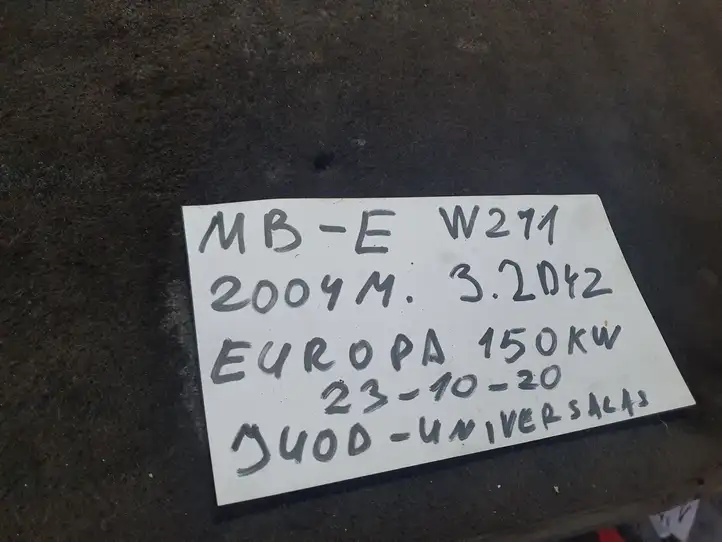 MB-E W211
2004M. 3.2DYZ
EUROPA 150KW
23-10-20
JUOD-UNIVERSALAS